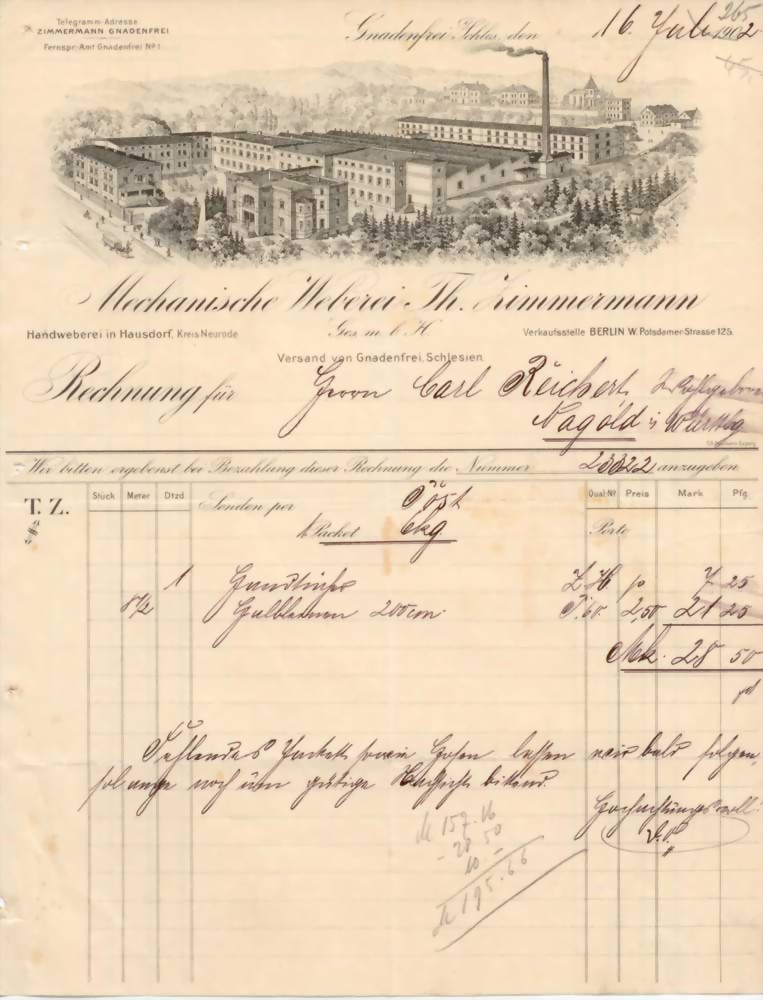 Telegramm-Adresse
ZIMMERMANN GNADENFREI
Fernspr.-Amt Gnadenfrei № 1
265
Gnadenfrei Schles., den 16. Juli 1902
Mechanische Weberei Th. Zimmermann
Handweberei in Hausdorf, Kreis Neurode
Ges. m. b. H.
Verkaufsstelle BERLIN W. Potsdamer-Strasse 125.
Versand von Gnadenfrei, Schlesien.
Rechnung für Herrn Carl Reichert,
Nagold i/ Württbg
Wir bitten ergebenst bei Bezahlung dieser Rechnung die Nummer 23322 anzugeben
T. Z.
Stück Meter Dtzd. Qual-№ Preis Mark Pfg.
Senden per Post
1 Packet 6kg. Porto
1 Handtücher Z.H. p 7 25
8 1/2 Halbleinen 200cm. 60. 2,50 21 25
Mk. 28 50
Fehlendes Packet sowie Hosen lassen wir bald folgen,
solange noch um gütige Nachsicht bittend.
Hochachtungsvoll
M 157.16
- 28 50
10 -
M 195.66